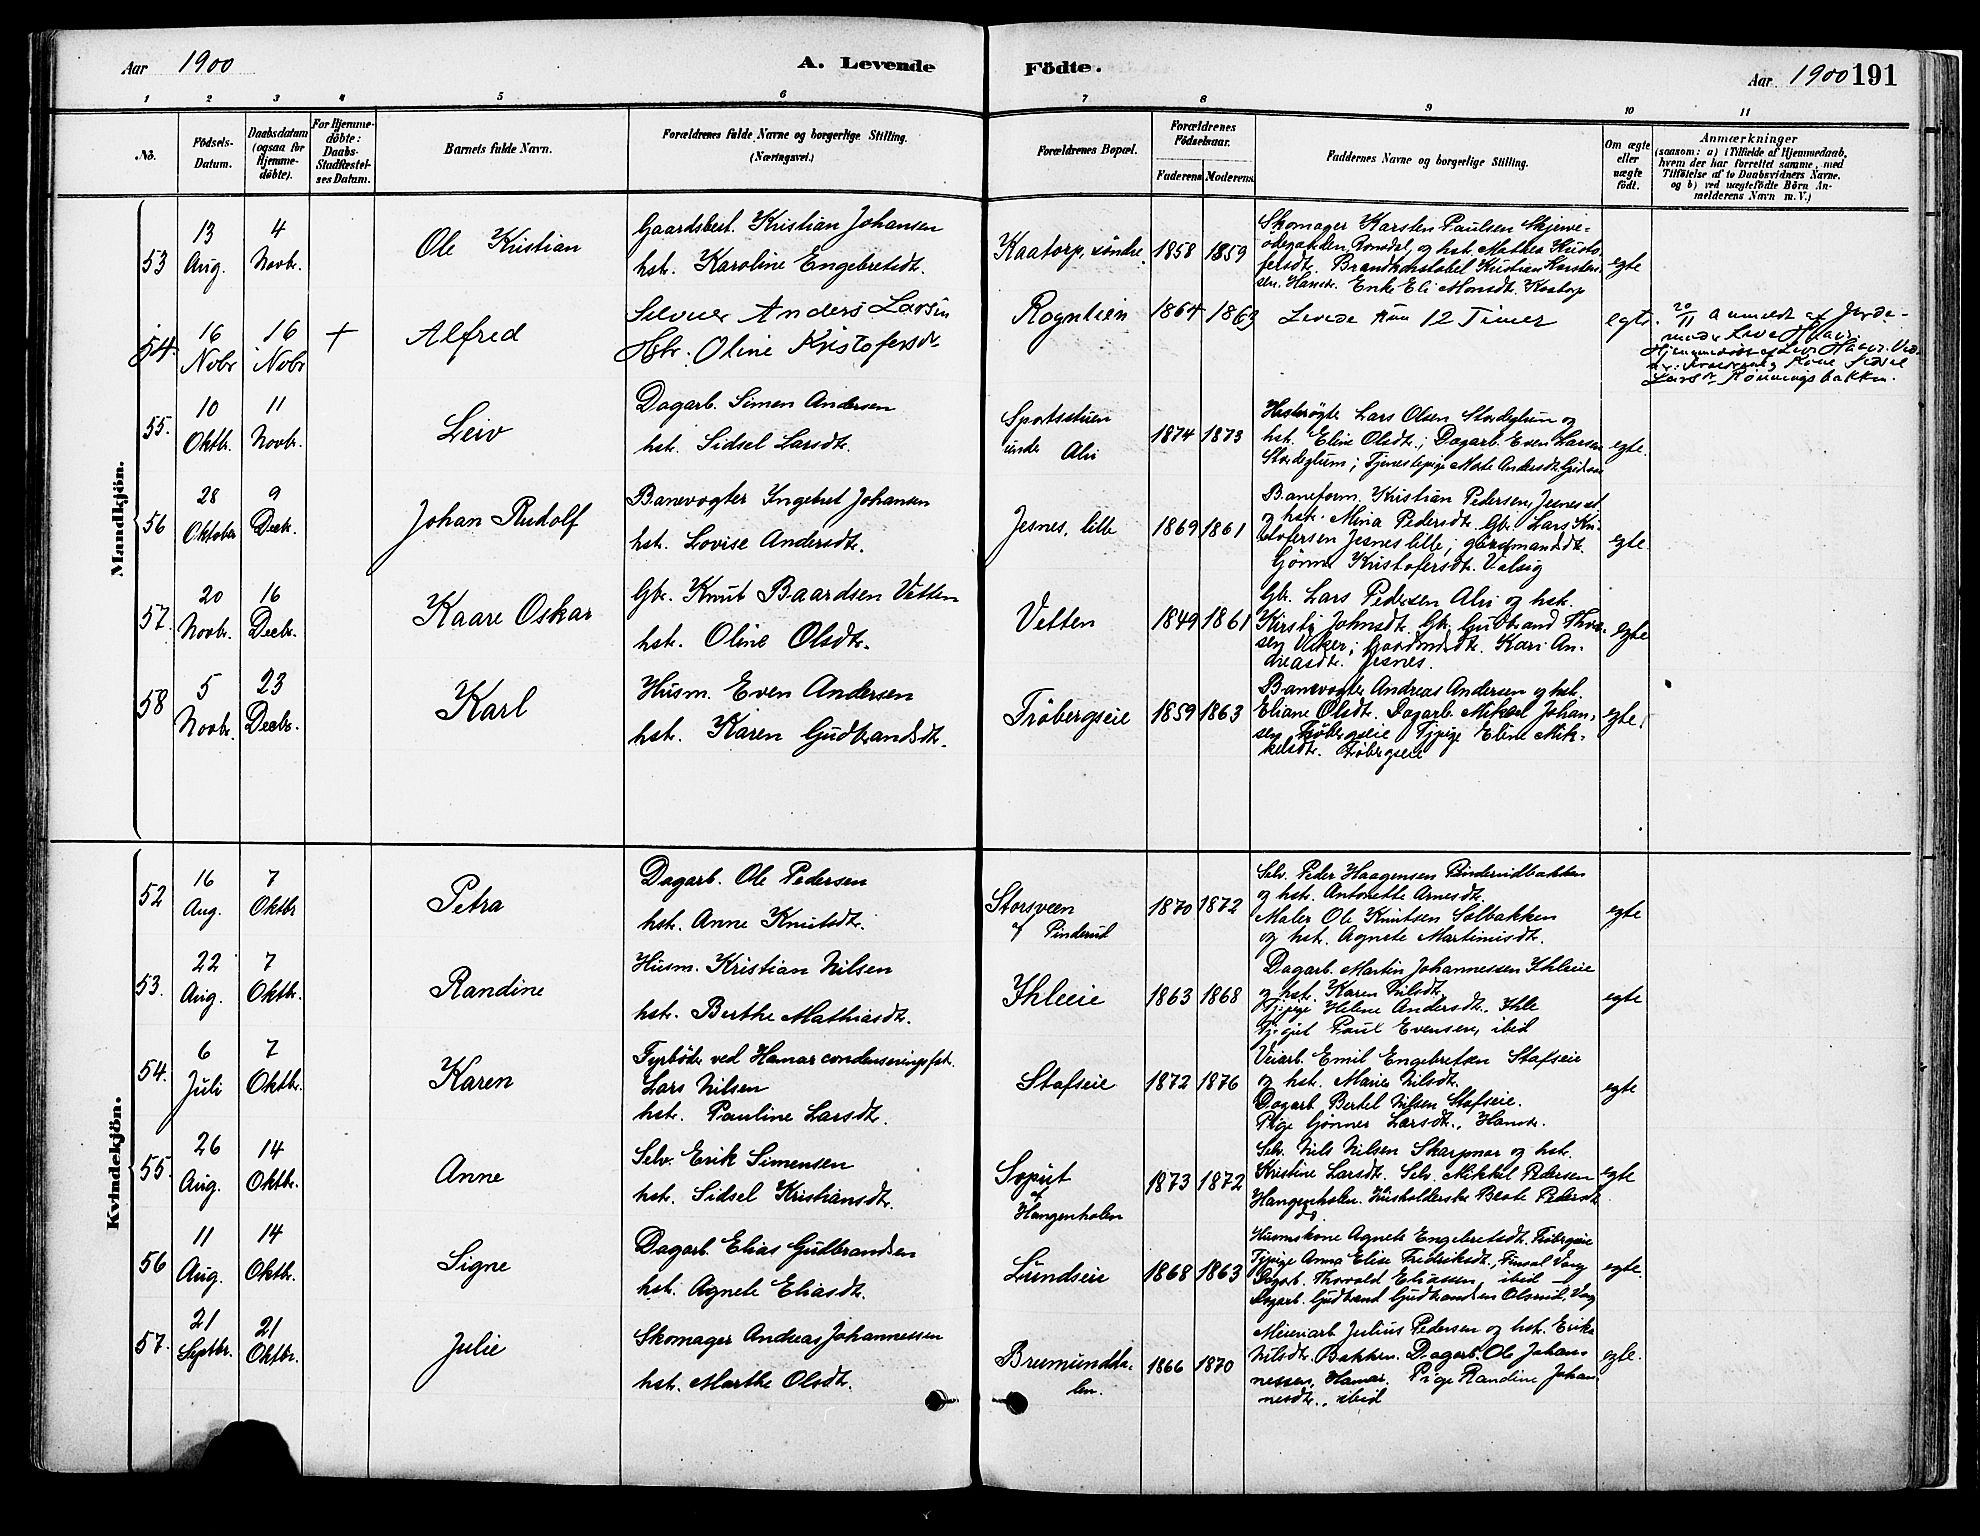 Aar 1900
A. Levende Födte.
Aar 1900 191
1 2 3 4 5 6 7 8 9 10 11
No.
Födsels-Datum.
Daabsdatum (ogsaa for Hjemme-döbte).
For Hjemme-döbte: Daabs-Stadfæstel-ses Datum.
Barnets fulde Navn.
Forældrenes fulde Navne og borgerlige Stilling.
(Næringsvei.)
Forældrenes Bopæl.
Forældrenes Födselsaar.
Faderens Moderens
Faddernes Navne og borgerlige Stilling.
Om ægte eller uægte födt.
Anmærkninger
(saasom: a) i Tilfælde af Hjemmedaab,
hvem der har forrettet samme, med
Tilföielse af to Daabsvidners Navne.
og b) ved uægtefödte Börn An-
melderens Navn m. V.)
Mandkjön.
53
13 Aug.
4 Novbr.
Ole Kristian
Gaardsbest. Kristian Johansen
hstr. Karoline Engebretsdt.
Kaatorp, söndre
1858 1859
Skomager Karsten Paulsen
og hst. Mathea
Brandkonstabel Kristian Karsten-
sen. Hamar. Enke Eli Monsdt. Kaatorp
egte
54.
16 Novbr
16 Novbr
+
Alfred
Selveier Anders Larsen
Hstr. Oline Kristofersdt
Rognlien
1864 1863
Levede kun 12 Timer
egte.
20/11 Anmeldt af Jorde-
moder
Larsdt Rönningsbakken.
55.
10 Oktbr.
11 Novbr.
Leiv
Dagarb. Simen Andersen
hstr. Sidsel Larsdt.
Sportsstuen
under Alvi
1874 1873
Lars Olsen Stordeglum og
hst. Eline Olsdt.; Dagarb. Even Larsen
Stordeglum; Tjenestepige Marte Andersdt.
egte.
56
28 Oktober
9 Decbr.
Johan Rudolf
Banevogter Ingebret Johansen
hstr. Lovise Andersdt.
Jesnes, lille
1869 1861
Baneform. Kristian Pedersen, Jesnes
og hst. Mina Pedersdt. Gbr. Lars Kri-
stofersen Jesnes lille; gårdmandsdt.
Gjönner Kristofersdt. Valsig
egte.
57.
20 Novbr.
16 Decbr.
Kaare Oskar
Gbr. Knut Baardsen Vetten
hstr. Oline Olsdt.
Vetten
1849 1861
Gbr. Lars Pedersen Alvi og hstr.
Kirsti Johnsdt. Gbr. Gudbrand
Kari An-
dreasdt. Jesnes.
egte
58
5 Novbr.
23 Decbr.
Karl
Husm. Even Andersen
hstr. Karen Gudbrandsdt.
Fröbergseie
1859 1863
Banevogter Andreas Andersen og hst.
Eliane Olsdt. Dagarb. Mikael Johan-
sen Fröbergseie Tjpige Eline Mik-
kelsdt. Fröbergseie
egte.
Kvindekjön.
52
16 Aug.
7 Oktbr
Petra
Dagarb. Ole Pedersen
hstr. Anne Knutsdt.
Storsveen
af Pinderud
1870 1872
Selv. Peder Haagensen Pinderudbakken
og hst. Antonette Arnesdt.
Maler Ole Knutsen Solbakken
og hst. Agnete Martinusdt.
egte
53.
22 Aug.
7 Oktbr.
Randine
Husm. Kristian Nilsen
hstr. Berthe Mathiasdt.
Ihleeie
1863 1868
Dagarb. Martin Johannessen Ihleeie
og hst. Karen Nilsdt.
Tjpige Helene Andersdt. Ihle
Tjgut Paul Evensen, ibid
egte
54.
6 Juli
7 Oktbr.
Karen
Fyrböder ved Hamar condenseringsfbr.
Lars Nilsen
hstr. Pauline Larsdt.
Stafseie
1872 1876
Veiarb. Emil Engebretsen Stafseie
og hst. Maries Nilsdt.
Dagarb Bertel Nilsen Stafseie.
Pige Gjönner Larsdt., Hamar.
egte
55.
26 Aug.
14 Oktbr.
Anne
Selv. Erik Simensen
hstr. Sidsel Kristiansdt.
Soput
af
Hangenholen
1873 1872
Selv. Nils Nilsen Skarpnor og hst.
Kristine Larsdt. Selv. Mikkel Pedersen
Hangenholen. Husholderske Beate Pedersdt.
egte
56
11 Aug.
14 Oktbr.
Signe
Dagarb. Elias Gudbrandsen
hst. Agnete Eliasdt.
Lundseie
1868 1863
Husmskone Agnete Engebretsdt. Fröbergseie
Tjpige Anna Elise Fredriksdt., Finsal Vang
Dagarb. Thorvald Eliassen, ibid
Dagarb. Gudbrand Gudbrandsen Olsrud, Vang
egte.
57.
21 Septbr.
21 Oktbr.
Julie
Skomager Andreas Johannessen
hst. Marthe Olsdt.
Brumundda-
len.
1866 1870
Meieriarb Julius Pedersen og hst. Erika
Nilsdt. Bakken. Dagarb. Ole Johan-
nessen, Hamar. Pige Randine Johan-
nesdt., ibid
egte.